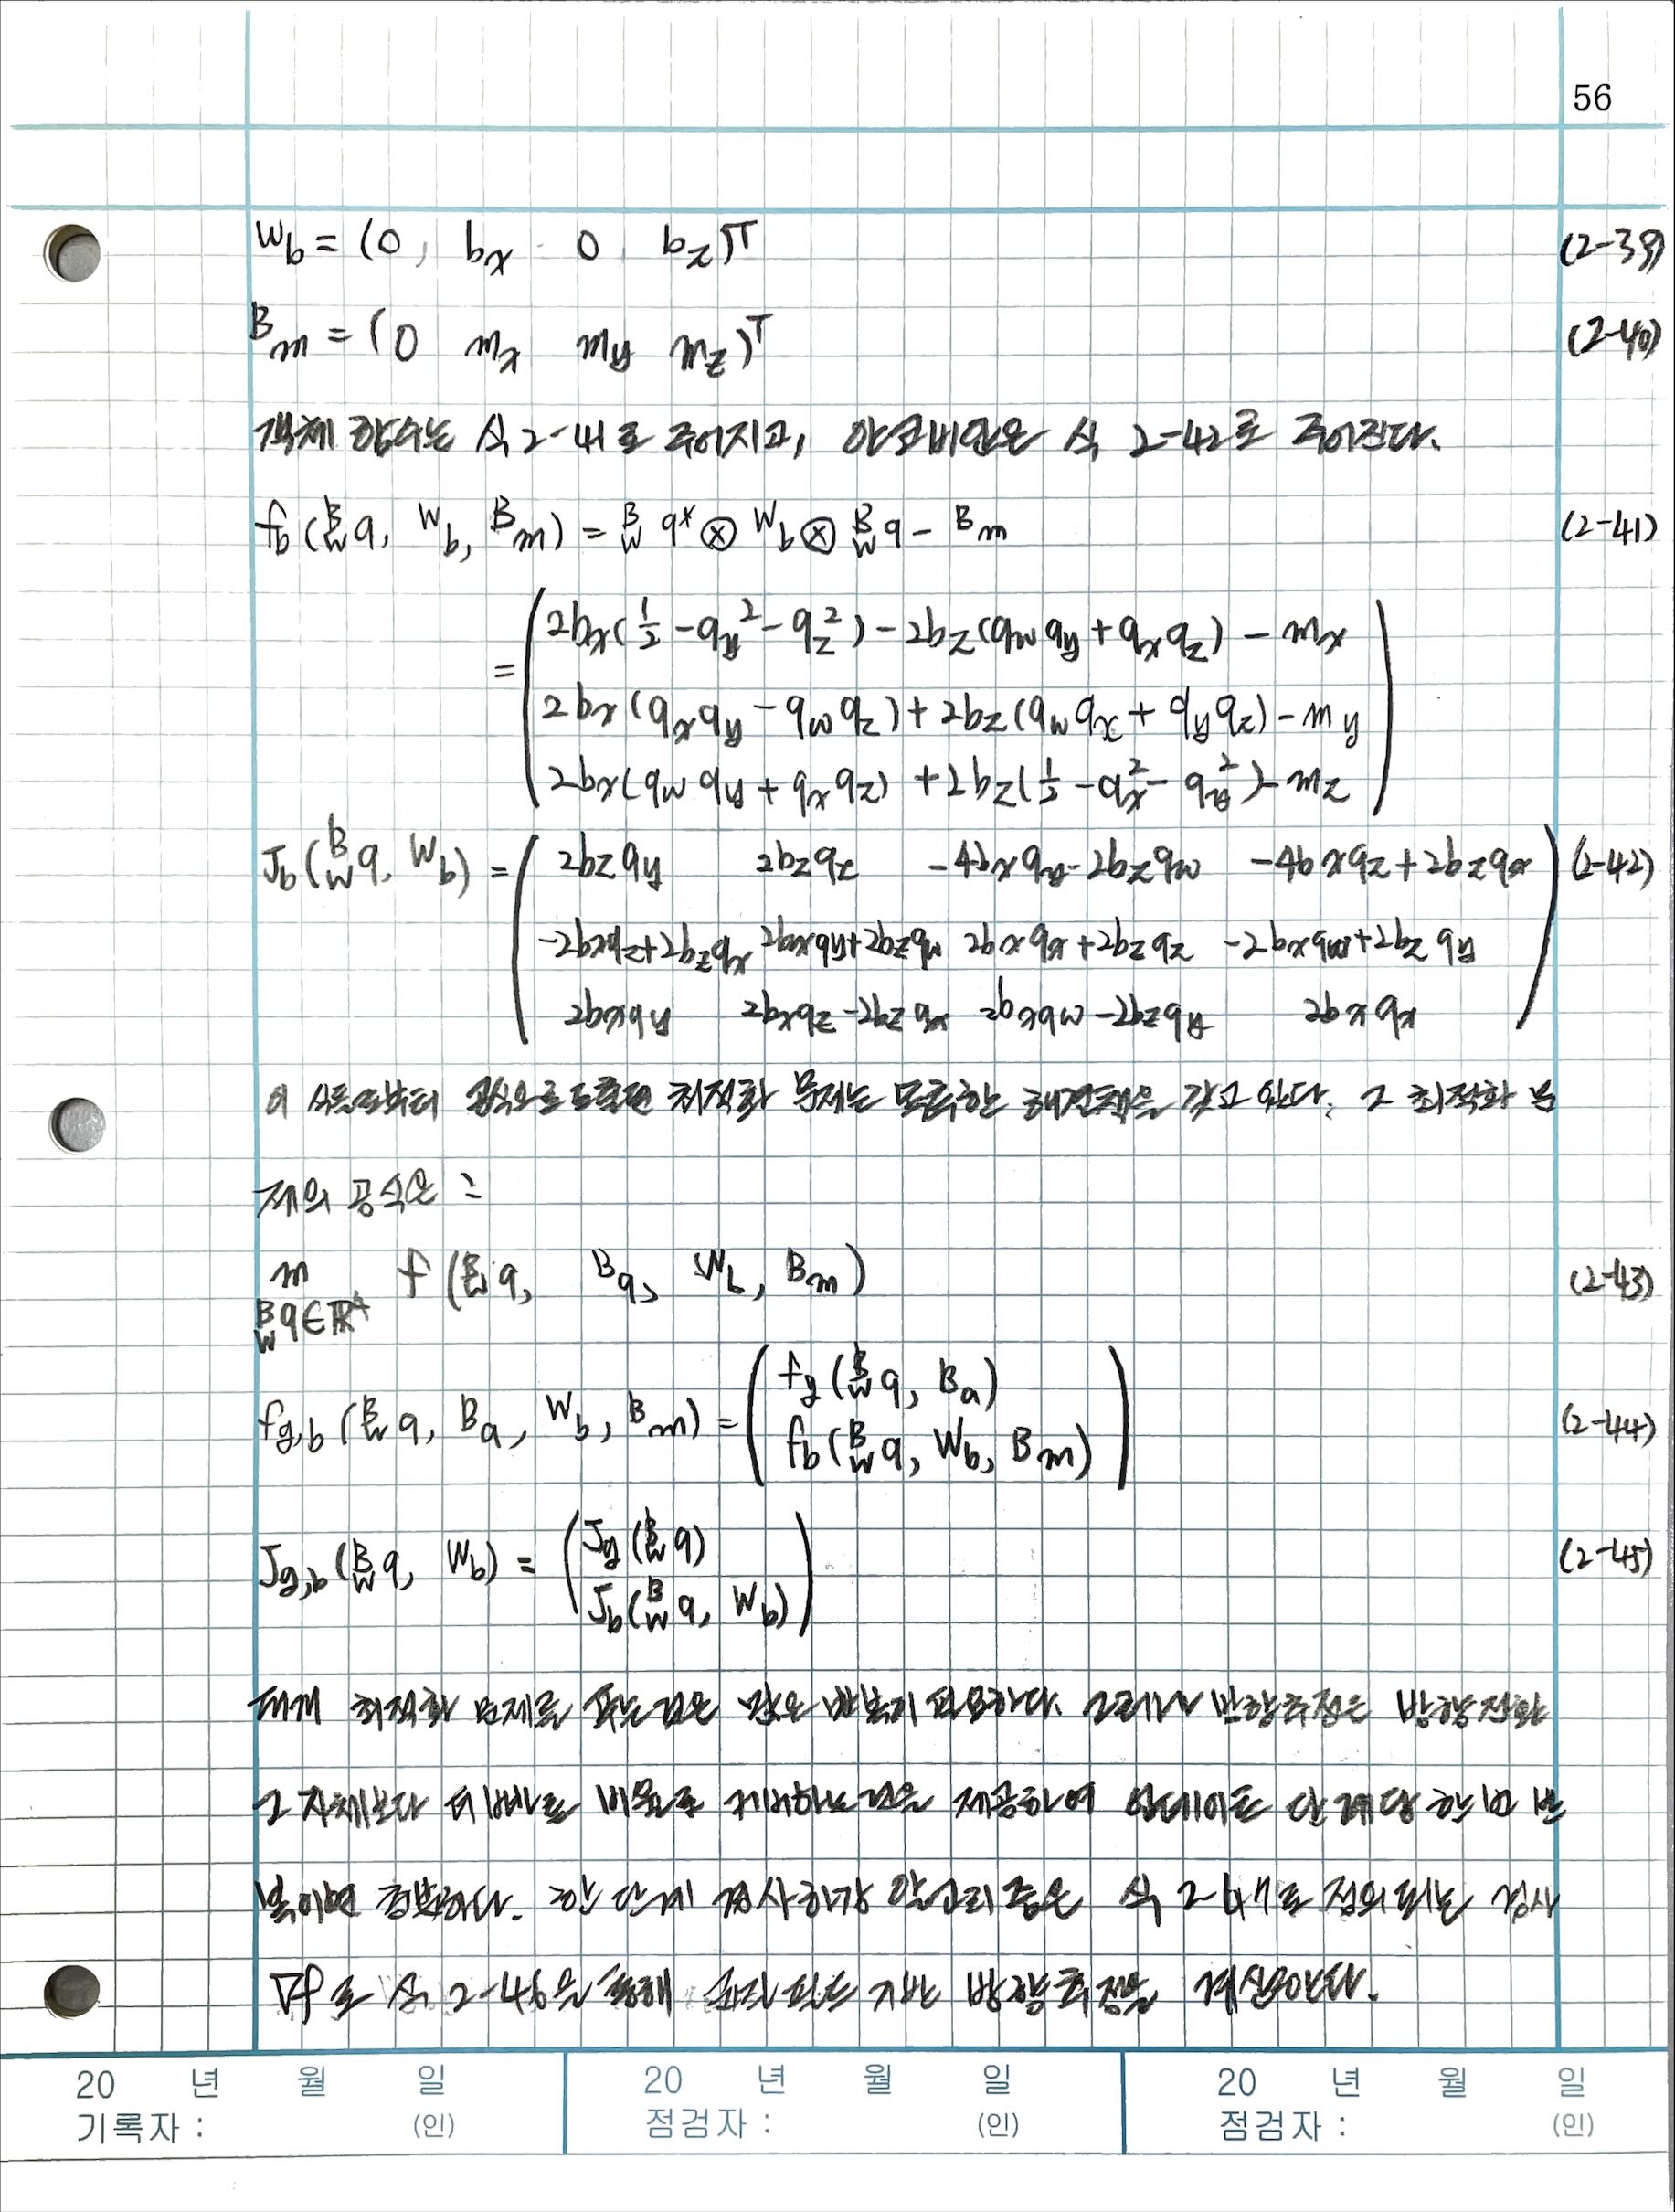 56
W_b = (0, b_x 0 b_z)^T (2-39)
^B_m = (0 m_x m_y m_z)^T (2-40)
객체 함수는 식 2-41로 주어지고, 야코비안은 식 2-42로 주어진다.
f_b (^B_W q, ^W_b, ^B_m) = ^B_W q* ⊗ ^W_b ⊗ ^B_W q - ^B_m (2-41)
= ( 2b_x(1/2 - q_y^2 - q_z^2) - 2b_z(q_w q_y + q_x q_z) - m_x
2b_x(q_x q_y - q_w q_z) + 2b_z(q_w q_x + q_y q_z) - m_y
2b_x(q_w q_y + q_x q_z) + 2b_z(1/2 - q_x^2 - q_y^2) - m_z )
J_b (^B_W q, W_b) = ( 2b_z q_y 2b_z q_z -4b_x q_y - 2b_z q_w -4b_x q_z + 2b_z q_x ) (2-42)
-2b_x q_z + 2b_z q_x 2b_x q_y + 2b_z q_w 2b_x q_x + 2b_z q_z -2b_x q_w + 2b_z q_y
2b_x q_y 2b_x q_z - 2b_z q_x 2b_x q_w - 2b_z q_y 2b_x q_x
이 식들로부터 공식으로 도출된 최적화 문제는 해결책을 갖고 있다. 그 최적화 문
제의 공식은 :
m f (^B_W q, B_a, W_b, B_m) (2-43)
^B_W q ∈ ℝ^4
f_g,b (^B_W q, B_a, W_b, B_m) = ( f_g (^B_W q, B_a)
f_b (^B_W q, W_b, B_m) ) (2-44)
J_g,b (^B_W q, W_b) = ( J_g (^B_W q)
J_b (^B_W q, W_b) ) (2-45)
대개 최적화 문제를 푸는 것은 많은 반복이 필요하다. 그러나 방향추정은 방향전환
그 자체보다 더 빠르 비율로 것을 제공하여 업데이트 단계당 한번 반
복이면 충분하다. 한 단계 경사하강 알고리즘은 식 2-47로 정의되는 경사
∇f로 식 2-46을 통해 기반 방향추정을 계산한다.
20 년 월 일 20 년 월 일 20 년 월 일
기록자 : (인) 점검자 : (인) 점검자 : (인)